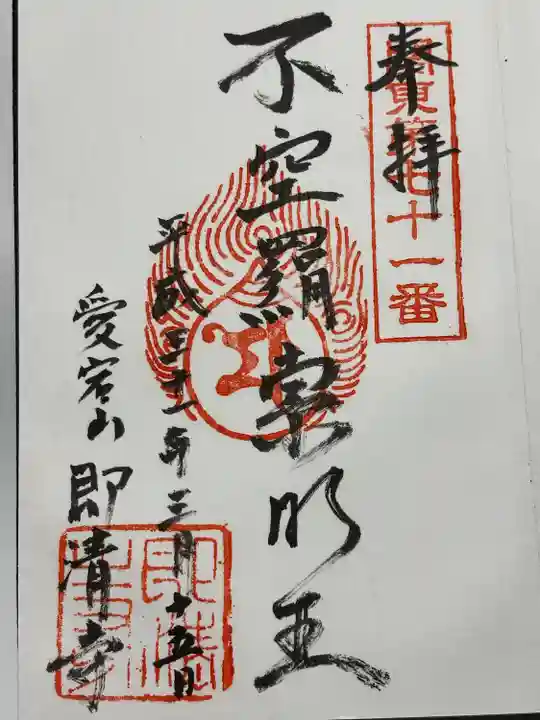 奉拝
関東第七十一番
不空羂索明王
平成三十一年三月十五日
愛宕山 即清寺
即清寺